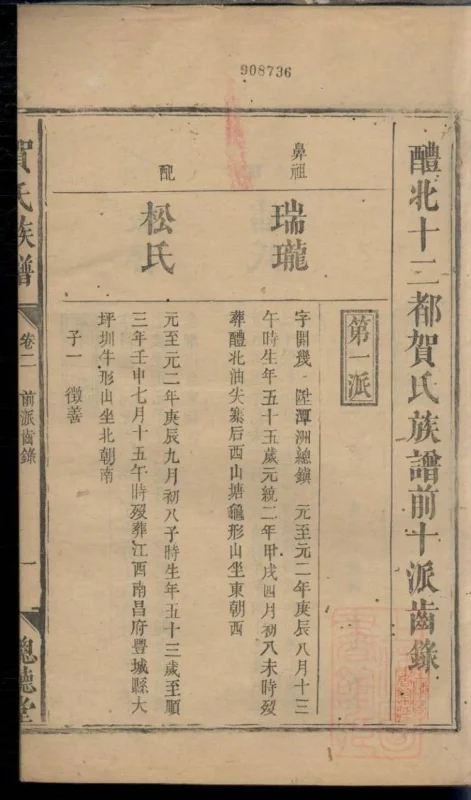 908736
醴北十二都賀氏族譜前十派齒錄
第一派
鼻祖
瑞瓏
字開幾 陞潭洲總鎮 元至元二年庚辰八月十三
午時生年五十五歲元統二年甲戌四月初八未時歿
葬醴北油尖寨后西山塘龜形山坐東朝西
配
松氏
元至元二年庚辰九月初八子時生年五十三歲至順
三年壬申七月十五午時歿葬江西南昌府豐城縣大
坪圳牛形山坐北朝南
子一 徵善
賀氏族譜
卷二 前派齒錄
一
總德堂